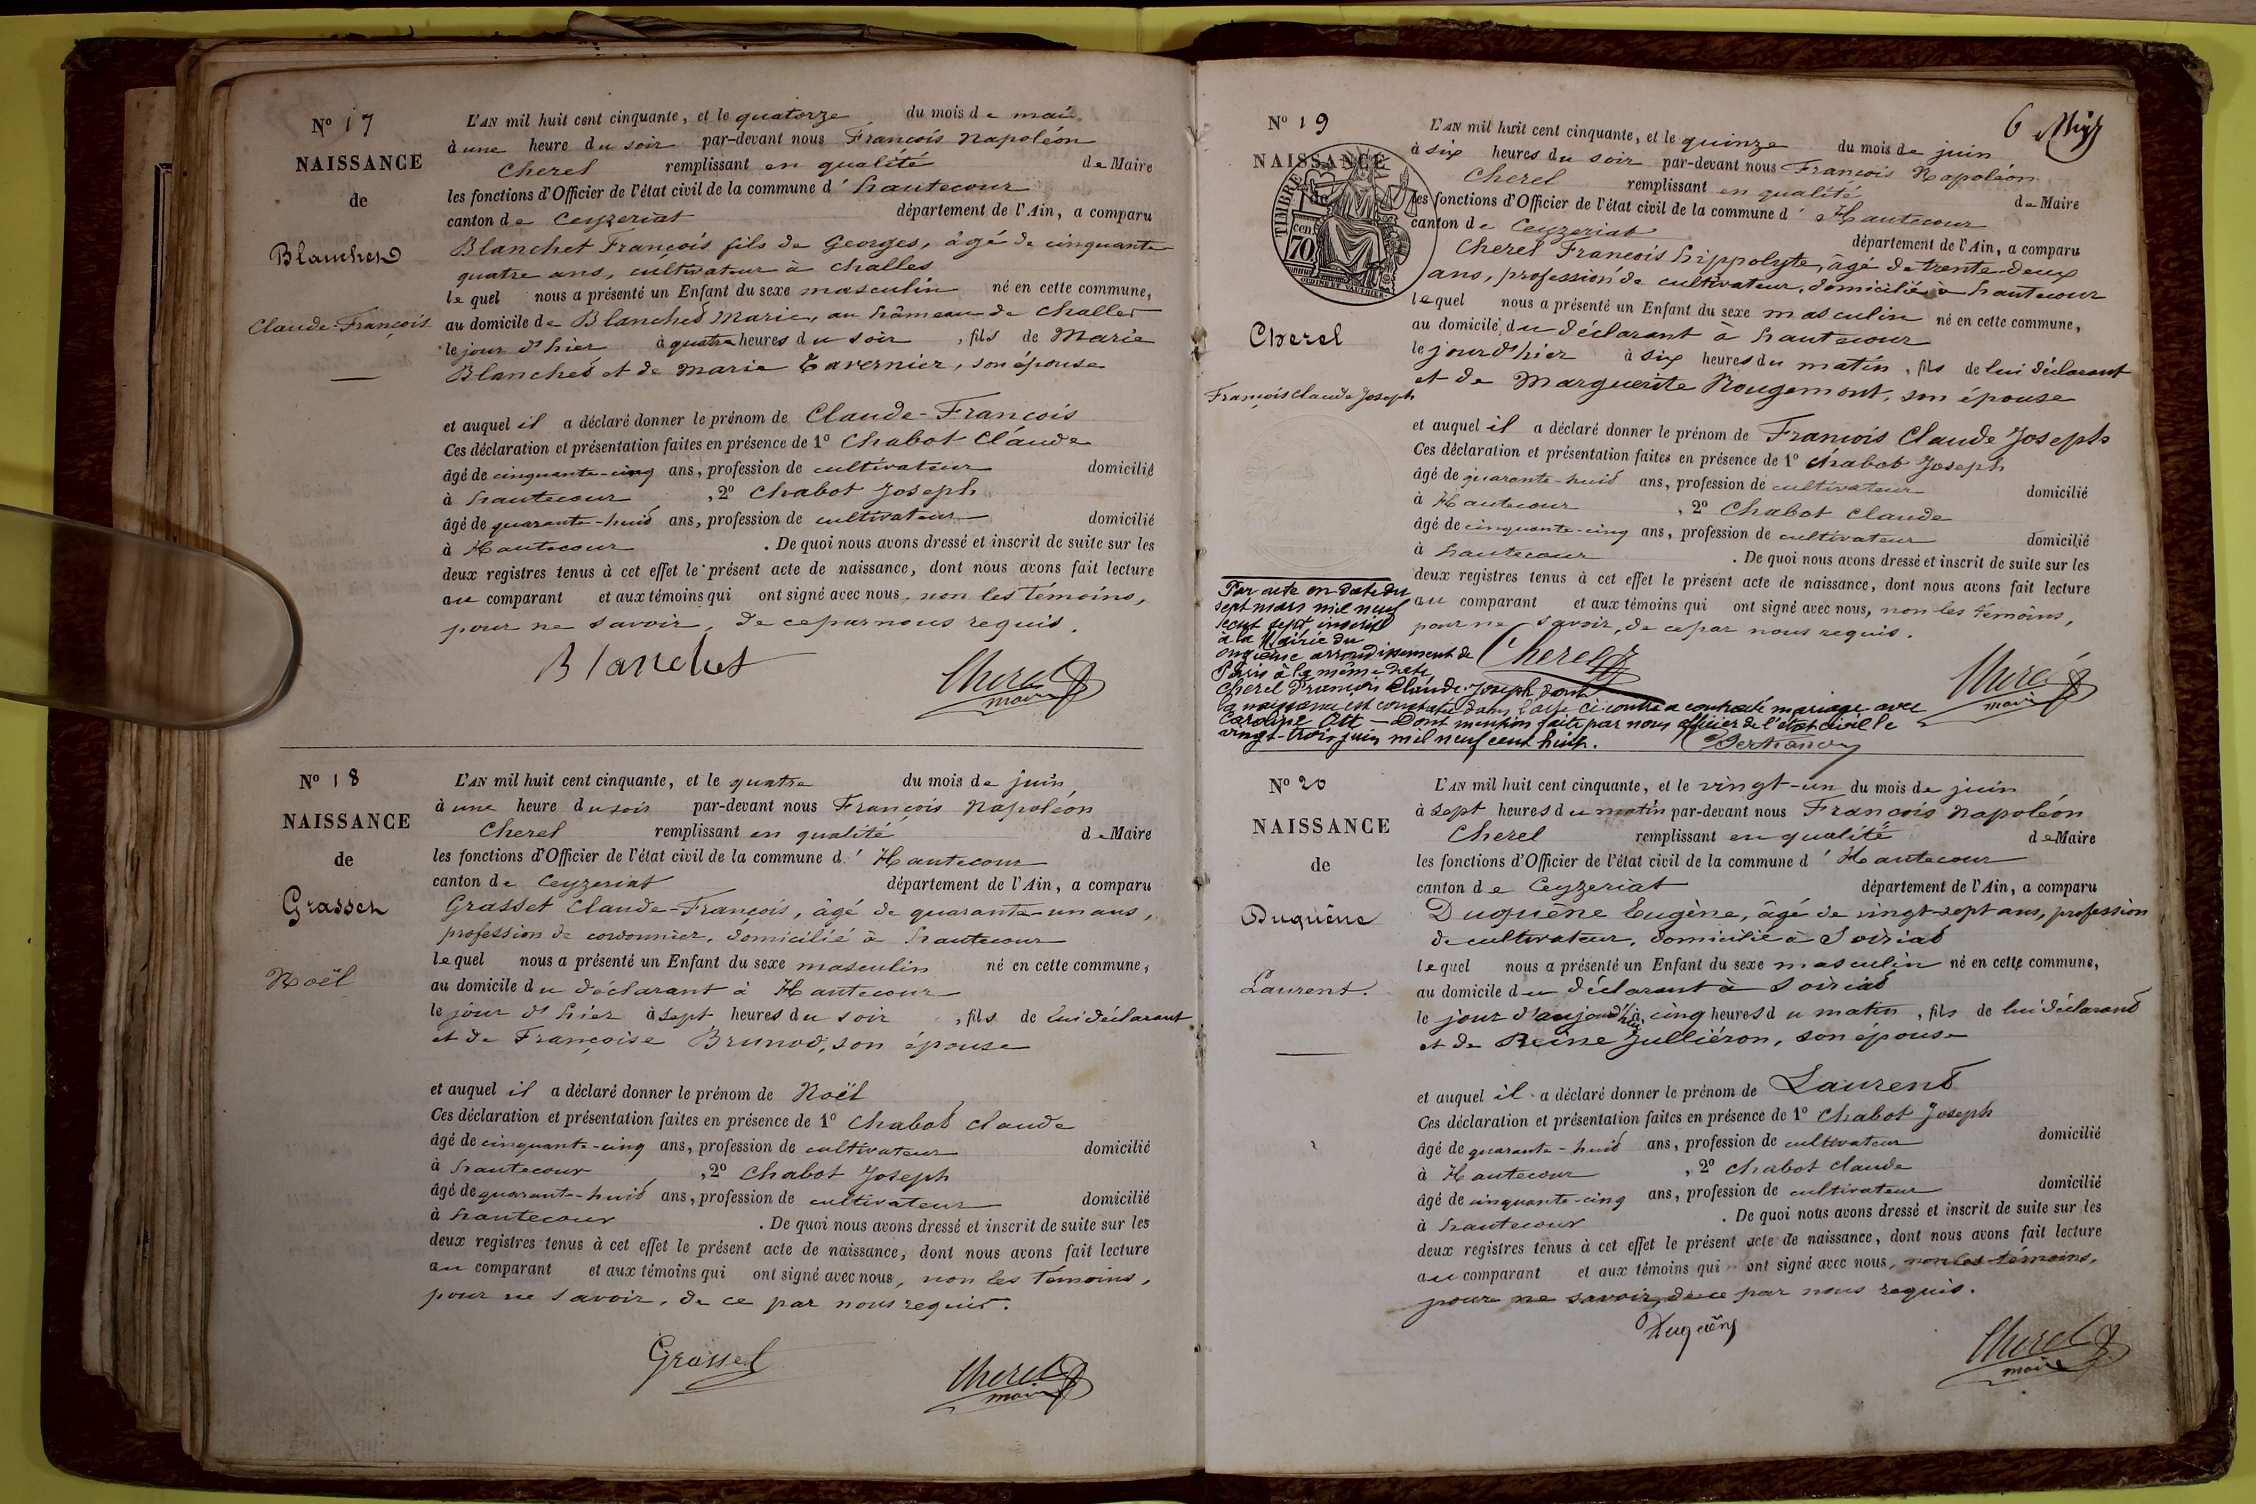 Nº 17
NAISSANCE
de
Blanchet
Claude-François
L'AN mil huit cent cinquante, et le quatorze du mois de mai
à une heure du soir par-devant nous François Napoléon
Cherel remplissant en qualité de Maire
les fonctions d'Officier de l'état civil de la commune d'hautecour
canton de Ceyzeriat département de l'Ain, a comparu
Blanchet François fils de Georges, âgé de cinquante
quatre ans, cultivateur à Challes
lequel nous a présenté un Enfant du sexe masculin né en cette commune,
au domicile de Blanchet Marie, au hâmeau de Challes
le jour d'hier à quatre heures du soir, fils de Marie
Blanchet et de Marie Tavernier, son épouse
et auquel il a déclaré donner le prénom de Claude-François
Ces déclaration et présentation faites en présence de 1º Chabot Claude
âgé de cinquante-cinq ans, profession de cultivateur domicilié
à hautecour, 2º Chabot Joseph
âgé de quarante-huit ans, profession de cultivateur domicilié
à Hautecour. De quoi nous avons dressé et inscrit de suite sur les
deux registres tenus à cet effet le présent acte de naissance, dont nous avons fait lecture
au comparant et aux témoins qui ont signé avec nous, non les témoins,
pour ne savoir, de ce par nous requis.
Blanchet
Cherel
maire
Nº 18
NAISSANCE
de
Grasset
Noël
L'AN mil huit cent cinquante, et le quatre du mois de juin
à une heure du soir par-devant nous François Napoléon
Cherel remplissant en qualité de Maire
les fonctions d'Officier de l'état civil de la commune d'Hautecour
canton de Ceyzeriat département de l'Ain, a comparu
Grasset Claude-François, âgé de quarante-un ans,
profession de cordonnier, domicilié à hautecour
lequel nous a présenté un Enfant du sexe masculin né en cette commune,
au domicile du déclarant à Hautecour
le jour d'hier à sept heures du soir, fils de lui déclarant
et de Françoise Brunod, son épouse
et auquel il a déclaré donner le prénom de Noël
Ces déclaration et présentation faites en présence de 1º Chabot Claude
âgé de cinquante-cinq ans, profession de cultivateur domicilié
à hautecour, 2º Chabot Joseph
âgé de quarante-huit ans, profession de cultivateur domicilié
à hautecour. De quoi nous avons dressé et inscrit de suite sur les
deux registres tenus à cet effet le présent acte de naissance, dont nous avons fait lecture
au comparant et aux témoins qui ont signé avec nous, non les témoins,
pour ne savoir, de ce par nous requis.
Grasset
Cherel
maire
6
Nº 19
NAISSANCE
TIMBRE
cen.
70
Cherel
François Claude Joseph
L'AN mil huit cent cinquante, et le quinze du mois de juin
à six heures du soir par-devant nous François Napoléon
Cherel remplissant en qualité de Maire
les fonctions d'Officier de l'état civil de la commune d'Hautecour
canton de Ceyzeriat département de l'Ain, a comparu
Cherel François hippolyte, âgé de trente-deux
ans, profession de cultivateur, domicilié à hautecour
lequel nous a présenté un Enfant du sexe masculin né en cette commune,
au domicile du déclarant à hautecour
le jour d'hier à six heures du matin, fils de lui déclarant
et de Marguerite Rougemont, son épouse
et auquel il a déclaré donner le prénom de François Claude Joseph
Ces déclaration et présentation faites en présence de 1º Chabot Joseph
âgé de quarante-huit ans, profession de cultivateur domicilié
à Hautecour, 2º Chabot Claude
âgé de cinquante-cinq ans, profession de cultivateur domicilié
à hautecour. De quoi nous avons dressé et inscrit de suite sur les
deux registres tenus à cet effet le présent acte de naissance, dont nous avons fait lecture
au comparant et aux témoins qui ont signé avec nous, non les témoins,
pour ne savoir, de ce par nous requis.
Cherel
Cherel
maire
Par acte en date du
sept mars mil neuf
cent sept inscrit
à la Mairie du
onzième arrondissement de
Paris à la même date
Cherel François Claude Joseph dont
la naissance est constatée dans l'acte ci-contre a contracté mariage avec
Caroline Ott — Dont mention faite par nous officier de l'état civil le
vingt-trois juin mil neuf cent huit.
Nº 20
NAISSANCE
de
Duquêne
Laurent.
L'AN mil huit cent cinquante, et le vingt-un du mois de juin
à sept heures du matin par-devant nous François Napoléon
Cherel remplissant en qualité de Maire
les fonctions d'Officier de l'état civil de la commune d'Hautecour
canton de Ceyzeriat département de l'Ain, a comparu
Duquêne Eugène, âgé de vingt-sept ans, profession
de cultivateur, domicilié à Soiriat
lequel nous a présenté un Enfant du sexe masculin né en cette commune,
au domicile du déclarant à Soiriat
le jour d'aujourd'hui à cinq heures du matin, fils de lui déclarant
et de Reine Julliéron, son épouse
et auquel il a déclaré donner le prénom de Laurent
Ces déclaration et présentation faites en présence de 1º Chabot Joseph
âgé de quarante-huit ans, profession de cultivateur domicilié
à Hautecour, 2º Chabot Claude
âgé de cinquante-cinq ans, profession de cultivateur domicilié
à hautecour. De quoi nous avons dressé et inscrit de suite sur les
deux registres tenus à cet effet le présent acte de naissance, dont nous avons fait lecture
au comparant et aux témoins qui ont signé avec nous, non les témoins,
pour ne savoir, de ce par nous requis.
Duquêne
Cherel
maire